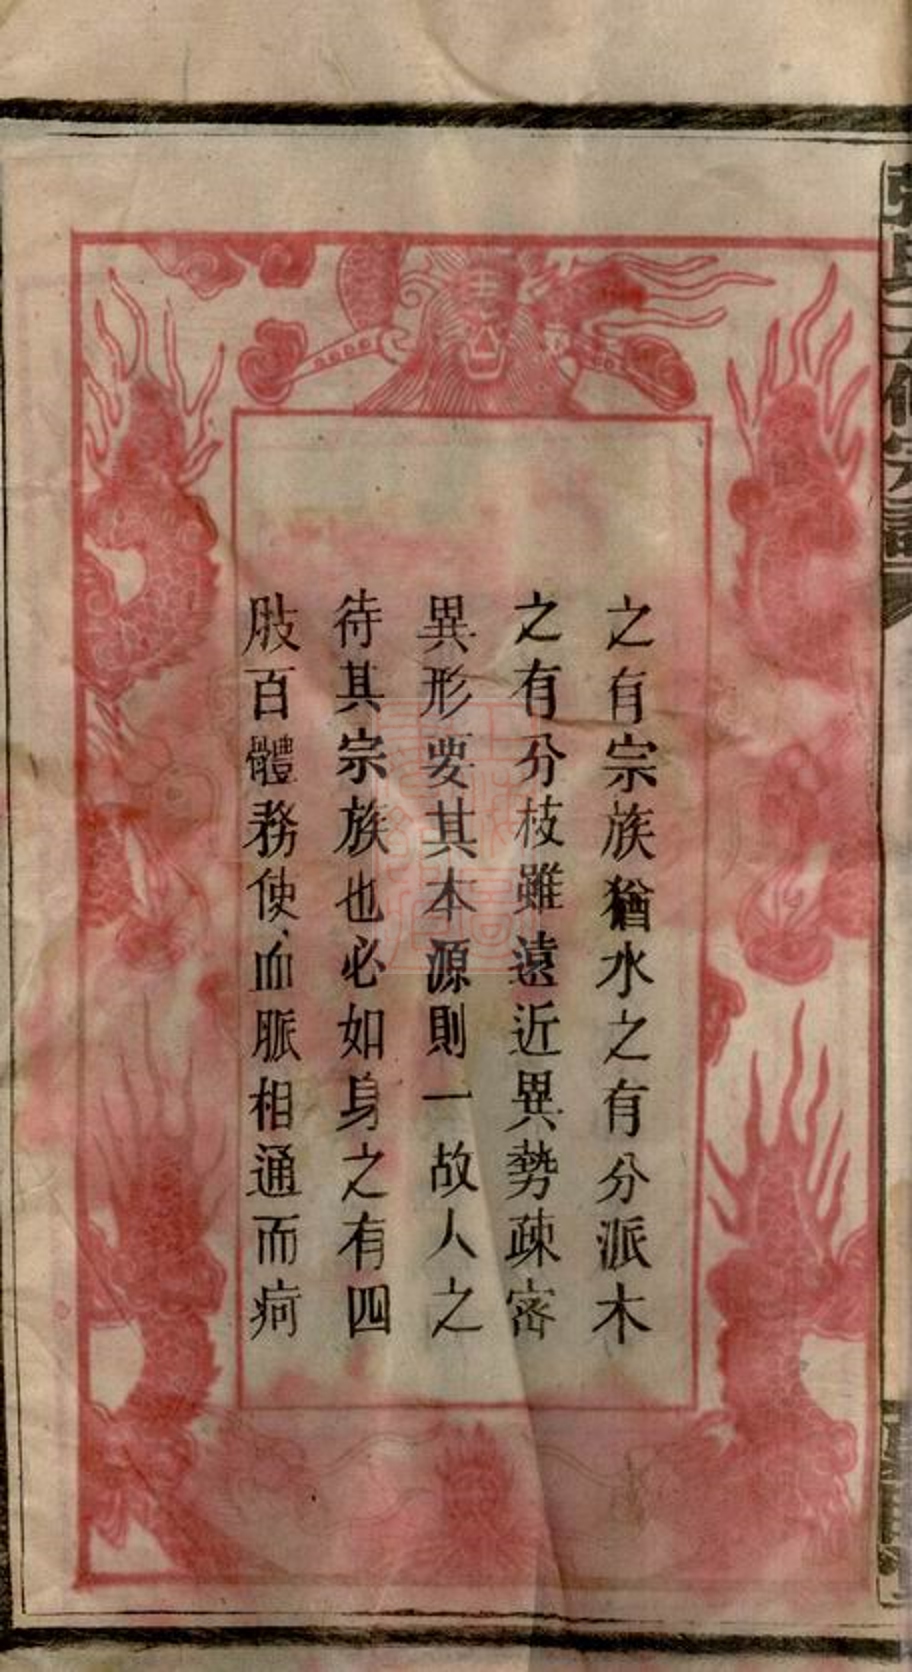 之有宗族猶水之有分派木
之有分枝雖遠近異勢疎密
異形要其本源則一故人之
待其宗族也必如身之有四
肢百體務使血脈相通而疴